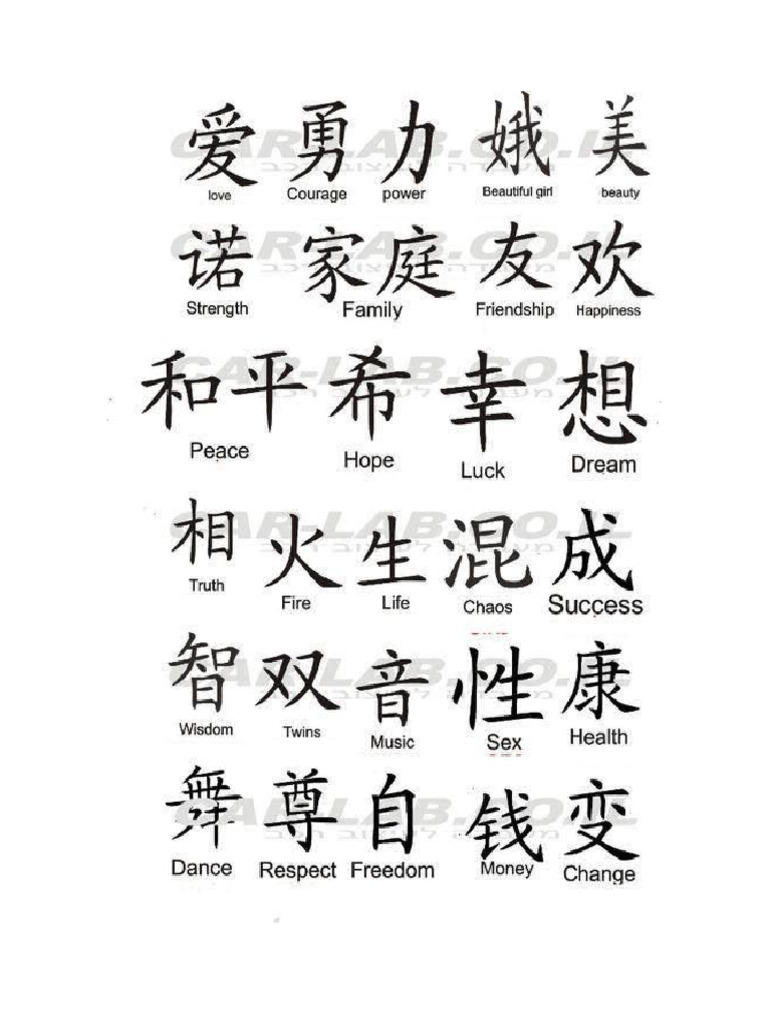 爱 勇 力 娥 美
love Courage power Beautiful girl beauty
诺 家庭 友 欢
Strength Family Friendship Happiness
和平 希 幸 想
Peace Hope Luck Dream
相 火 生 混 成
Truth Fire Life Chaos Success
智 双 音 性 康
Wisdom Twins Music Sex Health
舞 尊 自 钱 变
Dance Respect Freedom Money Change
CAR-LAB.CO.IL
CAR-LAB.CO.IL
CAR-LAB.CO.IL
CAR-LAB.CO.IL
CAR-LAB.CO.IL
CAR-LAB.CO.IL